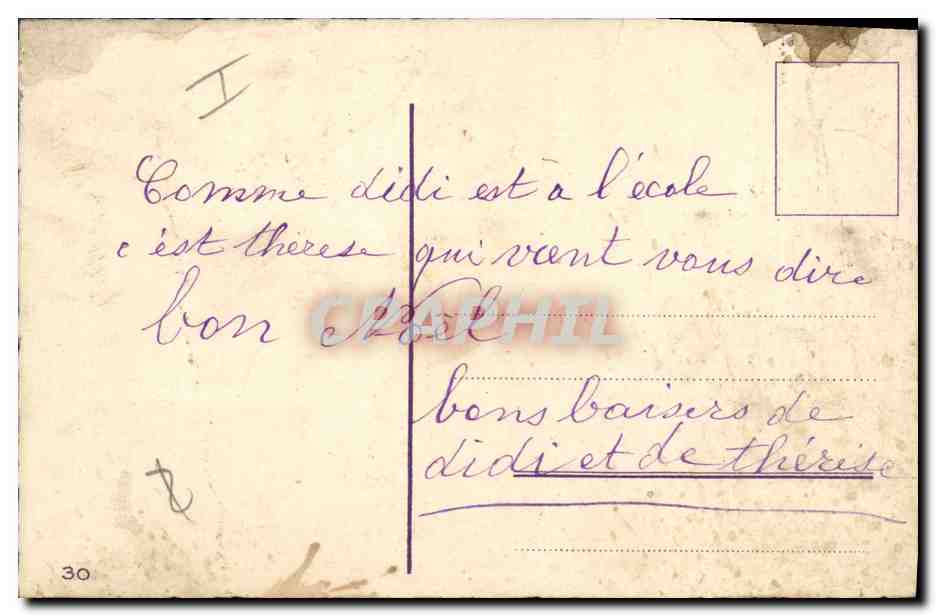 I
Comme didi est à l'école
c'est therese qui vient vous dire
bon Noël
CPAPHIL
bons baisers de
didi et de thérèse
30